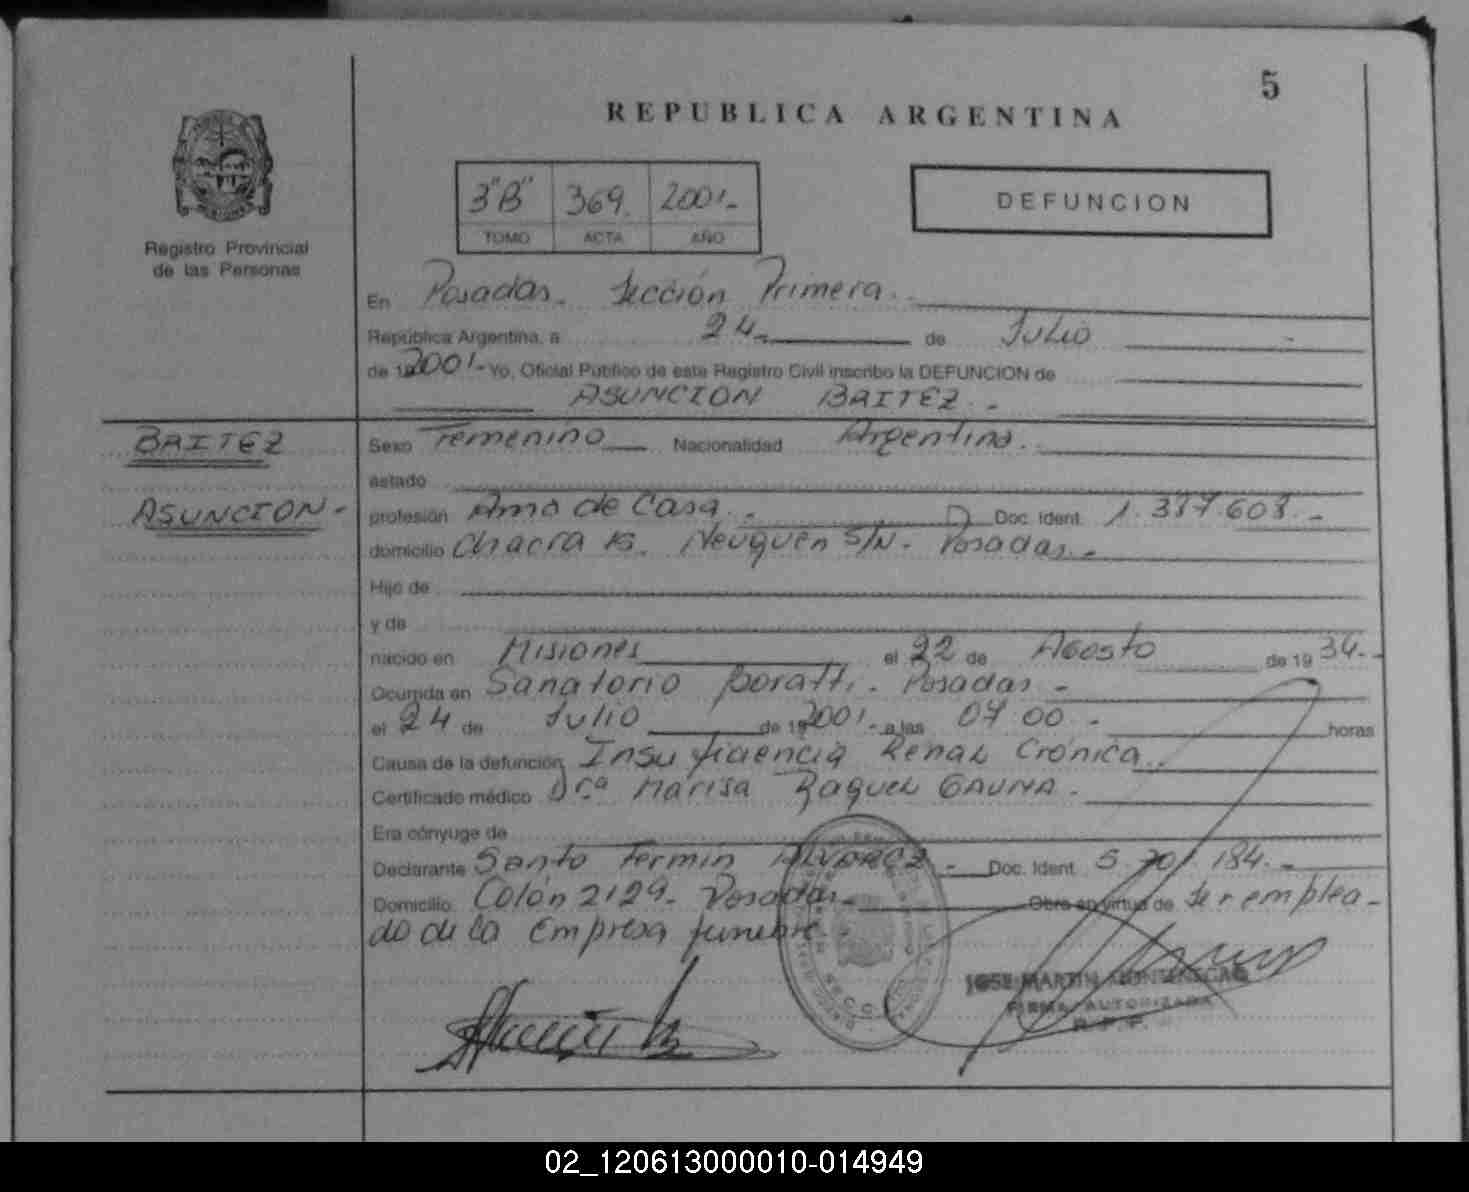 5
REPUBLICA ARGENTINA
3"B" 369. 2001.-
TOMO ACTA AÑO
DEFUNCION
Registro Provincial
de las Personas
En Posadas. Sección Primera.
República Argentina, a 24.- de Julio
de 19 2001.- Yo, Oficial Público de este Registro Civil inscribo la DEFUNCION de
ASUNCION BAITEZ.-
BAITEZ
ASUNCION.-
Sexo Femenino Nacionalidad Argentina.
estado
profesión Ama de Casa.- Doc. Ident.
domicilio Chacra Neuquén S/N.- Posadas.-
Hijo de
y de
nacido en Misiones el 22 de Agosto de 19 34.-
Ocurrida en Sanatorio Boratti.- Posadas.-
el 24 de Julio de 19 2001.- a las 07 00.- horas
Causa de la defunción Insuficiencia Renal Crónica.
Certificado médico Dra Marisa Raquel GAUNA.
Era cónyuge de
Declarante Santo Fermin ALVAREZ.- Doc. Ident. 5.701.184.-
Domicilio Colón 2129.- Posadas.- Obra en virtud de Ser emplea-
do de la empresa funebre.
JOSE MARTIN MONTENEGRO
FIRMA AUTORIZADA
R. P. P.
02_120613000010-014949